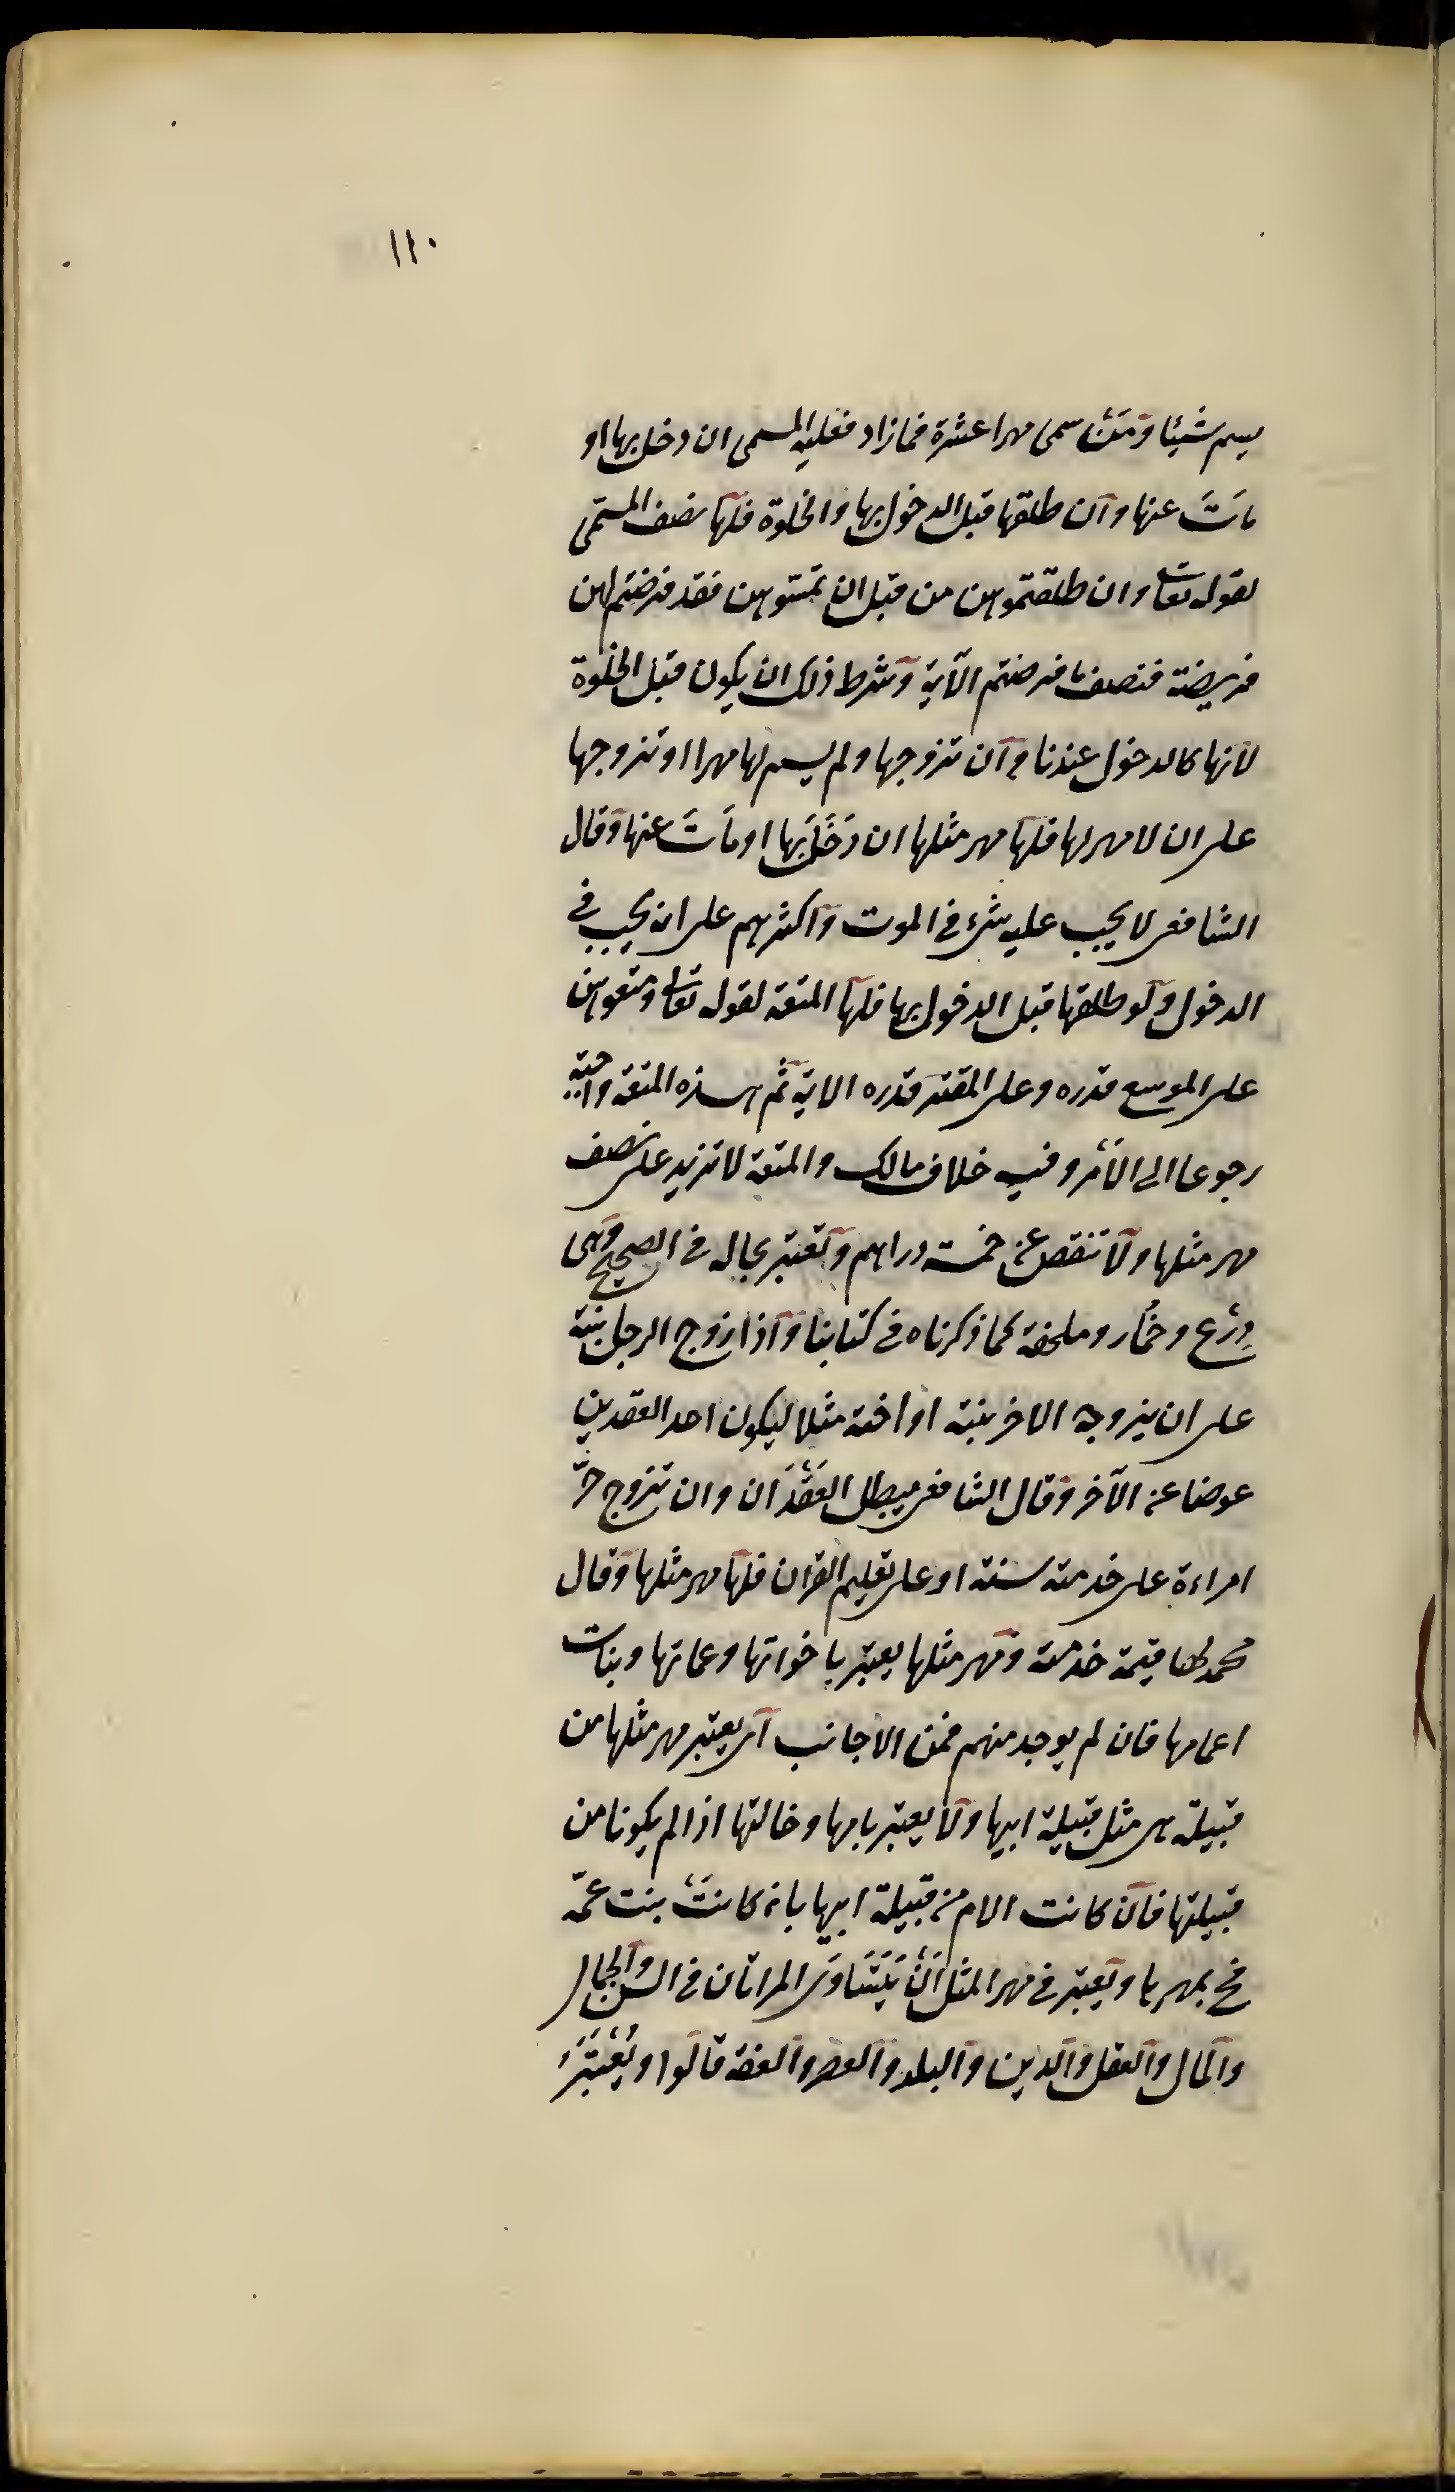 ١١٠
يسم شيئا ومَنْ سمى مهرا عشرة فمازاد فعليه المسمى ان دخل بها او
ماتَ عنها وان طلقها قبل الدخول بها والخلوة فلها نصف المسمّى
لقوله تعالى وان طلقتموهن من قبل ان تمسّوهن فقد فرضتم لهن
فريضة فنصف ما فرضتم الآية وشرط ذلك ان يكون قبل الخلوة
لأنها كالدخول عندنا وان تزوجها ولم يسم لها مهرا او تزوجها
على ان لا مهر لها فلها مهر مثلها ان دَخَلَ بها او ماتَ عنها وقال
الشافعى لا يجب عليه شىء فى الموت واكثرهم على انه يجب فى
الدخول ولو طلقها قبل الدخول بها فلها المتعة لقوله تعالى ومتعوهن
على الموسع قدره وعلى المقتر قدره الاية ثم هذه المتعة واجبة
رجوعا الى الأمْر وفيه خلاف مالك والمتعة لا تزيد على نصف
مهر مثلها ولا تنقص عن خمسة دراهم وتعتبر بحاله فى الصحيح وهى
دِرْع وخُمار وملحفة كما ذكرناه فى كتابنا واذا زوج الرجل بنته
على ان يزوجه الاخر بنته او اخته مثلا ليكون احد العقدين
عوضا عن الآخر وقال الشافعى يبطل العَقْدَان وان تزوج حرّ
امراءة على خدمته سنة او على تعليم القران فلها مهر مثلها وقال
محمد لها قيمة خدمته ومهر مثلها يعتبر باخواتها وعماتها وبنات
اعمامها فان لم يوجد منهم فمن الاجانب اى يعتبر مهر مثلها من
قبيلة هى مثل قبيلة ابيها ولا يعتبر بامها وخالتها اذا لم يكونا من
قبيلتها فان كانت الام من قبيلة ابيها بانه كانَتْ بنت عمّه
فح بمهرها ويعتبر فى مهر المثل اَنْ يَتَسَاوَى المراتان فى السن والجمال
والمال والعقل والدين والبلد والعصر والعفة قالوا ويُعْتَبَرُ